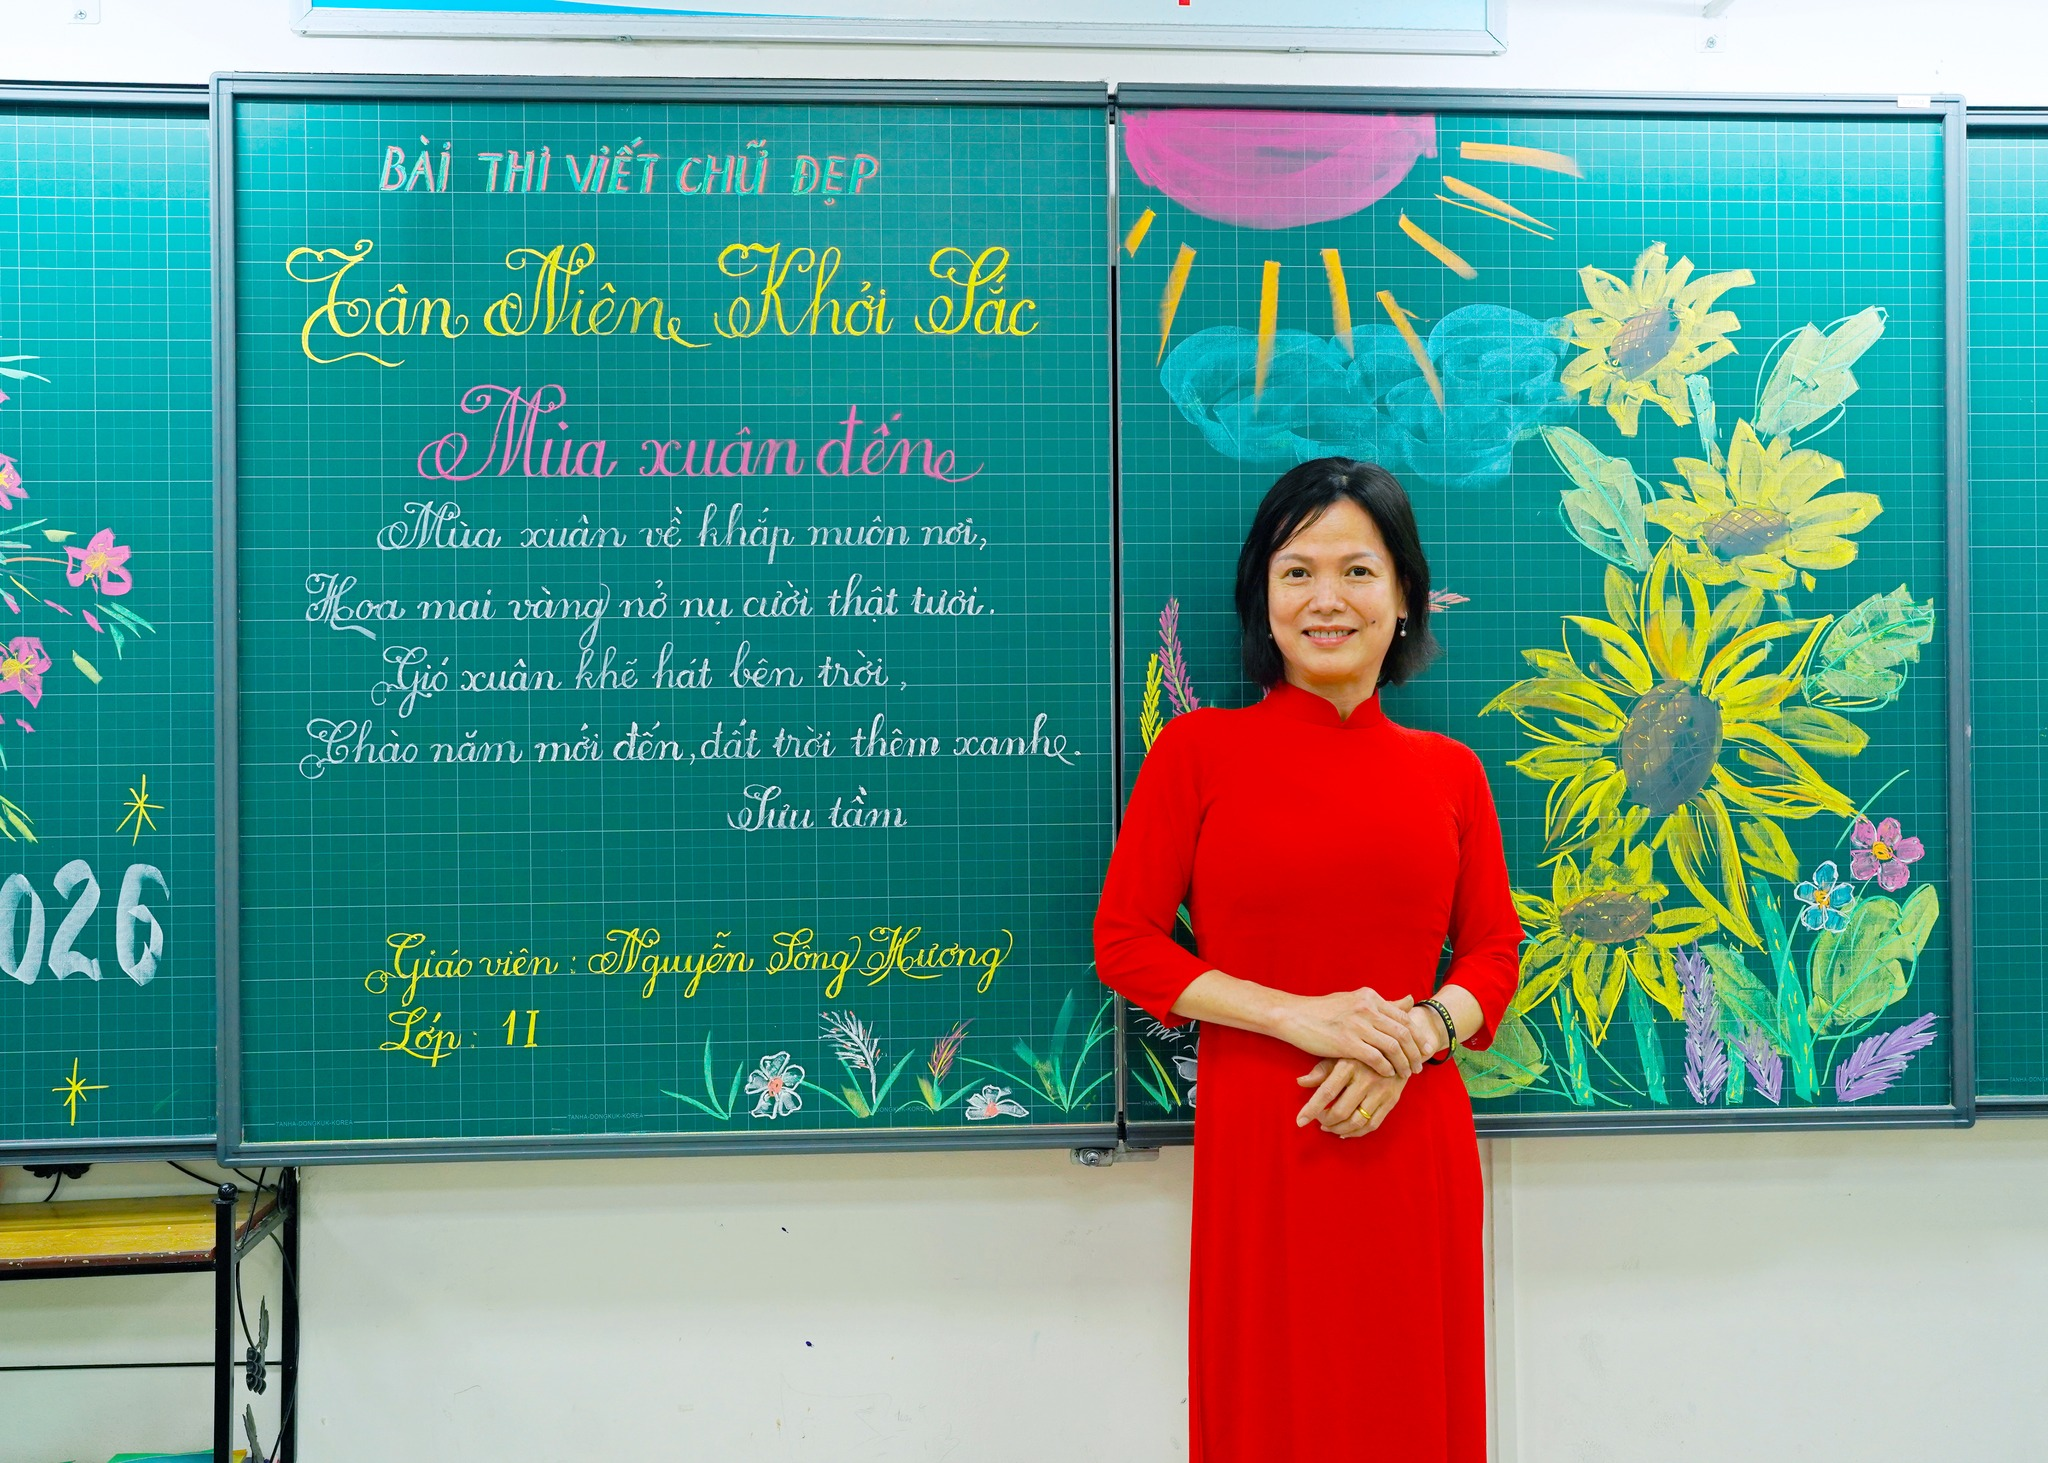 BÀI THI VIẾT CHỮ ĐẸP
Tân Niên Khởi Sắc
Mùa xuân đến
Mùa xuân về khắp muôn nơi,
Hoa mai vàng nở nụ cười thật tươi.
Gió xuân khẽ hát bên trời,
Chào năm mới đến, đất trời thêm xanh.
Sưu tầm
Giáo viên : Nguyễn Sông Hương
Lớp : 1I
026
TANHA-DONGKUK-KOREA
TANHA-DONGKUK-KOREA